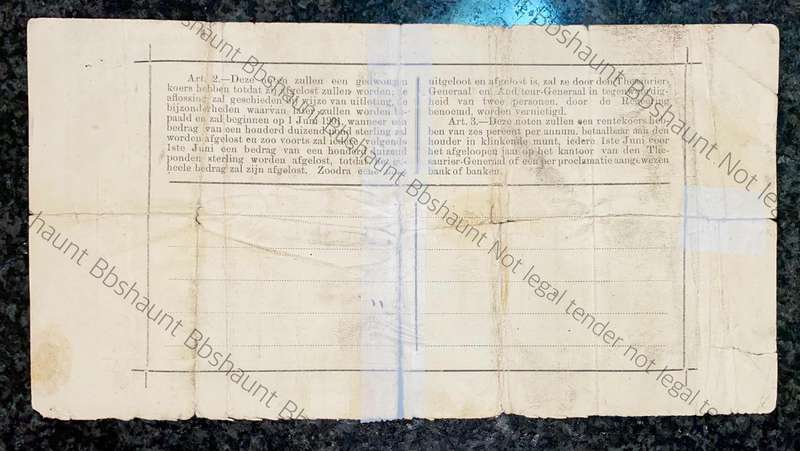 Art. 2.—Deze noten zullen een gedwongen
koers hebben totdat zij afgelost zullen worden; de
aflossing zal geschieden bij wijze van uitloting, de
bijzonderheden waarvan later zullen worden be-
paald en zal beginnen op 1 Juni 1901, wanneer een
bedrag van een honderd duizend pond sterling zal
worden afgelost en zoo voorts zal iedere volgende
1ste Juni een bedrag van een honderd duizend
ponden sterling worden afgelost, totdat het ge-
heele bedrag zal zijn afgelost. Zoodra eene
uitgeloot en afgelost is, zal ze door den Thesaurier-
Generaal en Auditeur-Generaal in tegenwoordig-
heid van twee personen, door de Regering
benoemd, worden vernietigd.
Art. 3.—Deze noten zullen een rentekoers heb-
ben van zes percent per annum, betaalbaar aan den
houder in klinkende munt, iedere 1ste Juni voor
het afgeloopen jaar op het kantoor van den The-
saurier-Generaal of een per proclamatie aangewezen
bank of banken.
Bbshaunt Bbshaunt Bbshaunt Bbshaunt Not legal tender not legal te
Bbshaunt Not legal
haunt Bbshaunt Bbshaunt Bbshaunt Bb